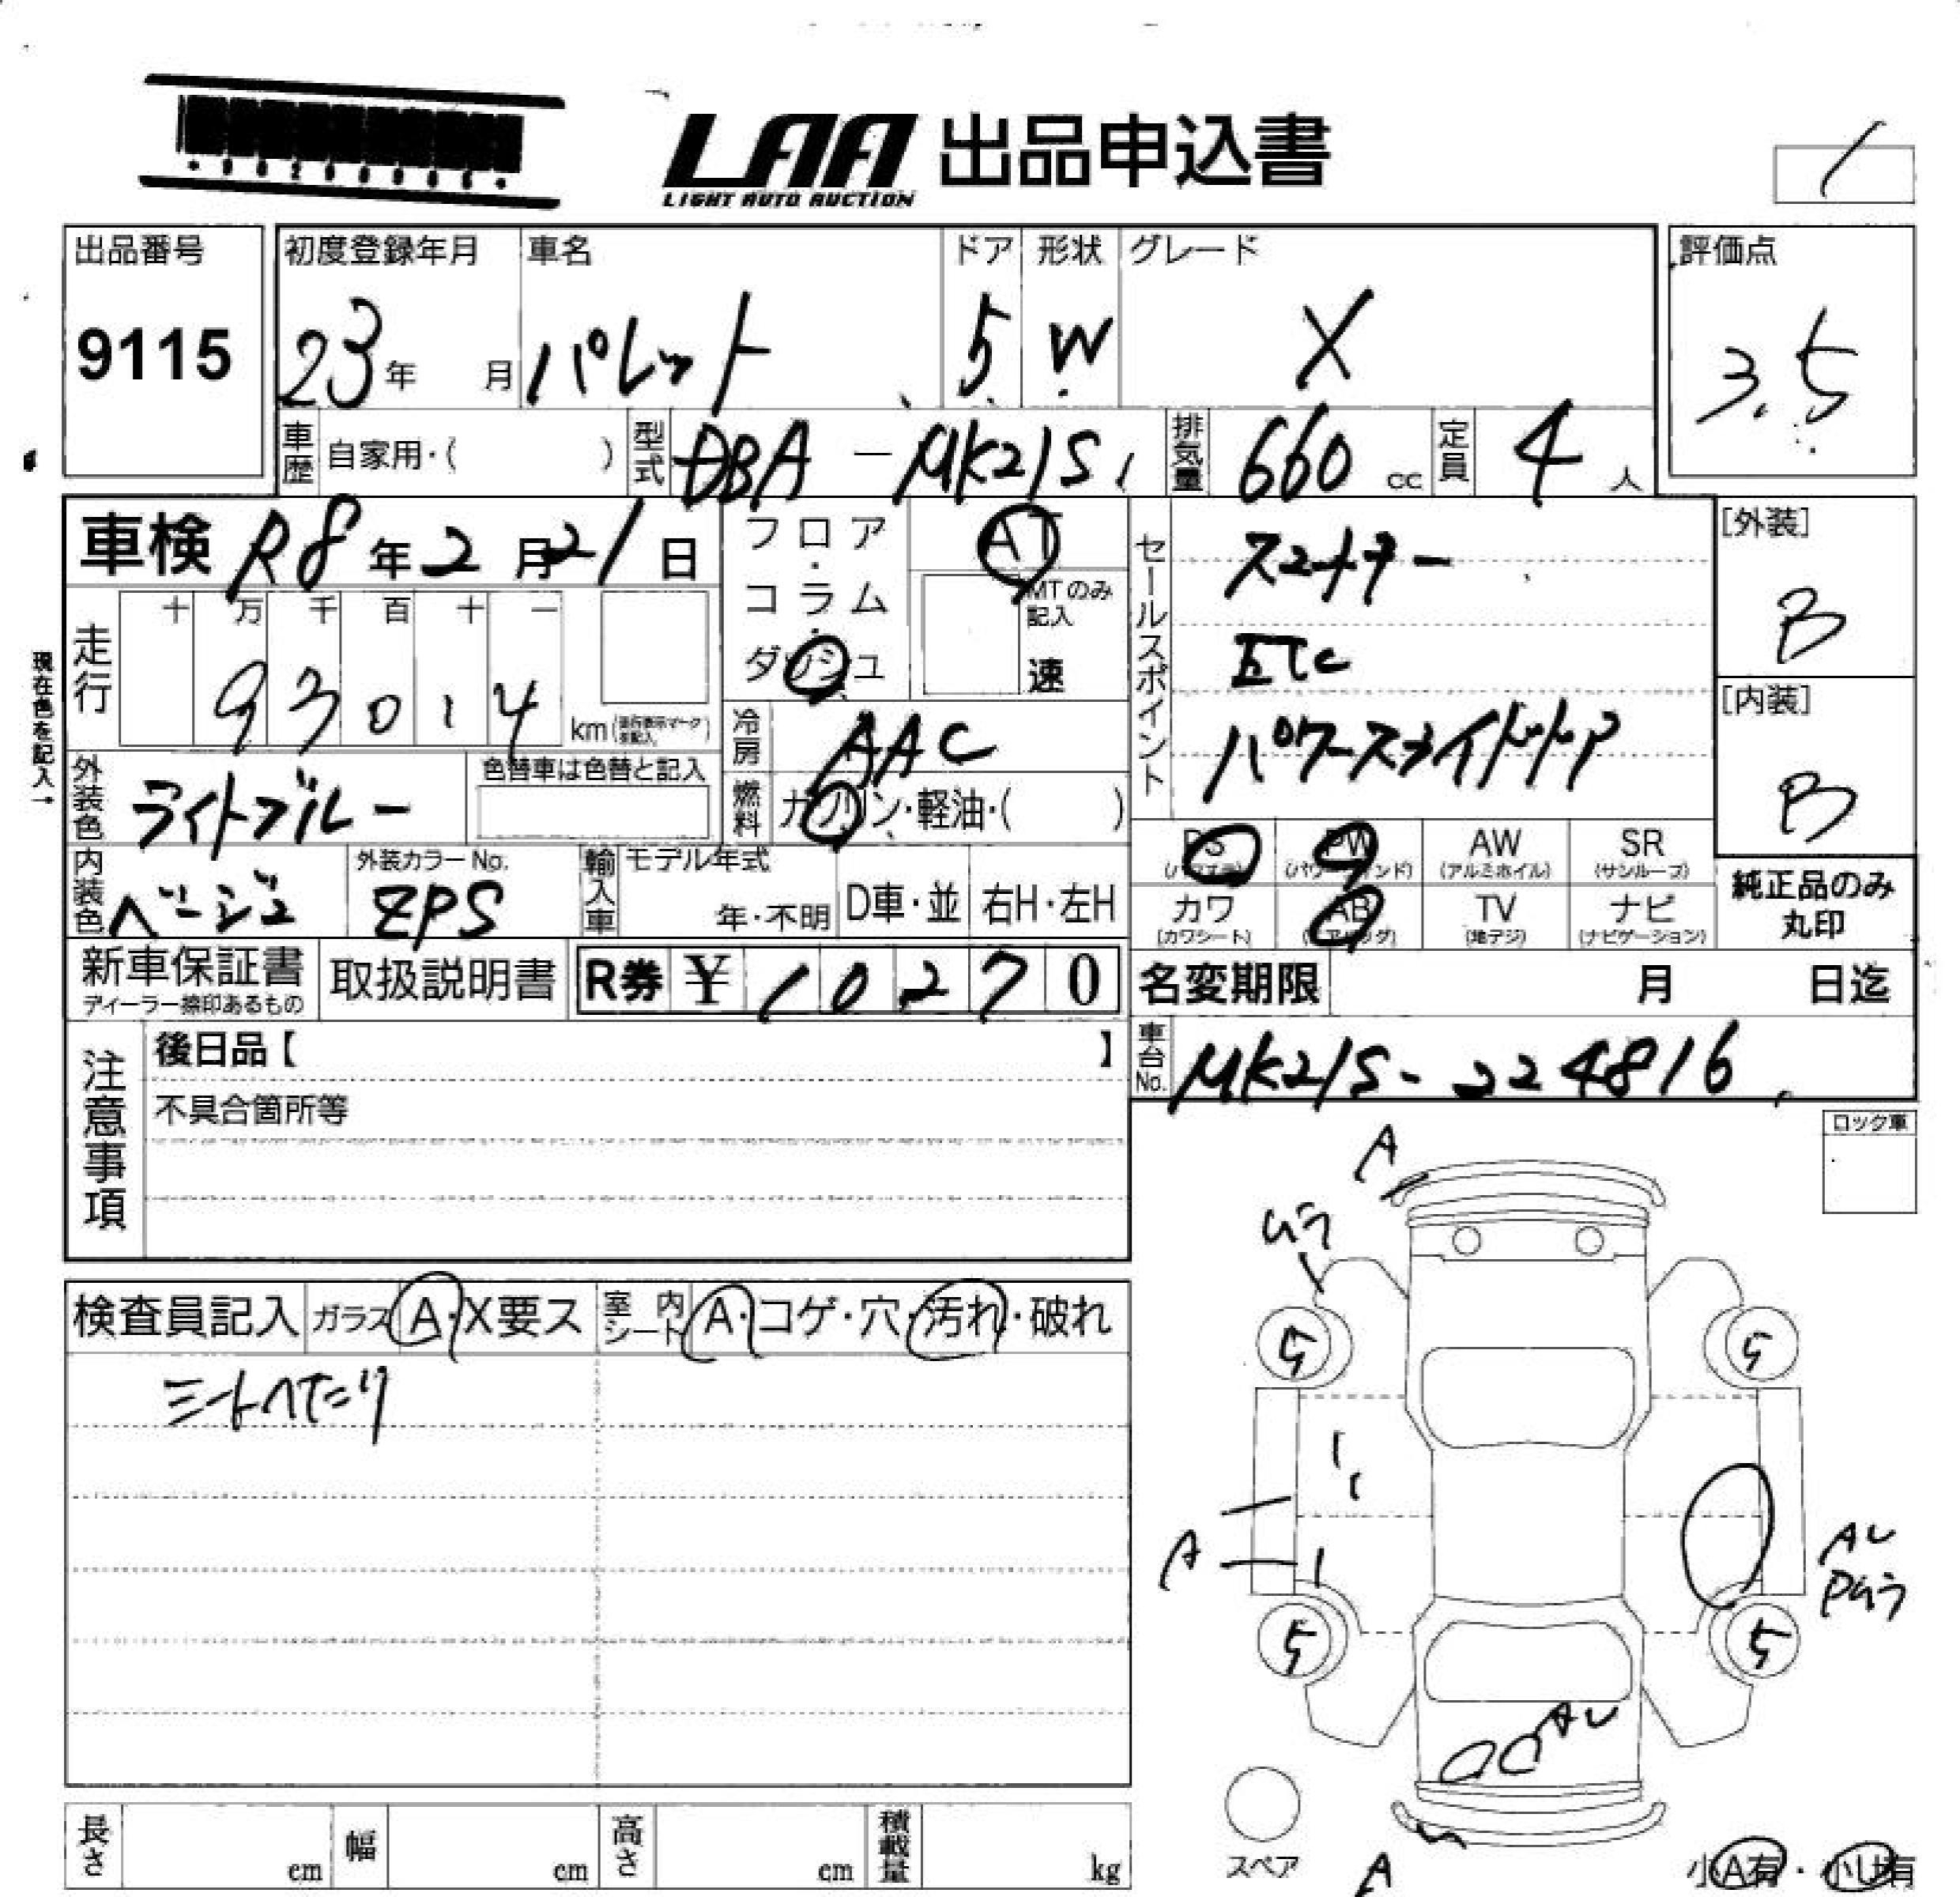 LAA 出品申込書
LIGHT AUTO AUCTION
出品番号
9115
初度登録年月
23年 月
車名
パレット
ドア
5
形状
W
グレード
X
評価点
3.5
車歴 自家用・( )
型式 DBA-MK21S
排気量 660 cc
定員 4 人
車検 R8年2月21日
フロア・コラム・ダッシュ
AT
MTのみ記入
速
セールスポイント
スマートキー
ETC
パワースライドドア
[外装]
B
[内装]
B
現在色を記入→
走行
十 万 千 百 十 一
93014
km
冷房 AAC
外装色 ライトブルー
色替車は色替と記入
燃料 ガソリン・軽油・( )
PS PW AW SR
(パワステ) (パワーウィンド) (アルミホイル) (サンルーフ)
カワ AB TV ナビ
(カワシート) (エアバッグ) (地デジ) (ナビゲーション)
純正品のみ
丸印
内装色 ベージュ
外装カラーNo.
ZPS
輸入車
モデル年式
年・不明
D車・並
右H・左H
新車保証書
ディーラー捺印あるもの
取扱説明書
R券 ¥ 10270
名変期限 月 日迄
車台No. MK21S-224816
注意事項
後日品【 】
不具合箇所等
ロック車
検査員記入
ガラス A・X要ス
室内シート A・コゲ・穴・汚れ・破れ
シートヘたり
A
ムラ
5 5
A
AU
Pムラ
5 5
AU
A
スペア
小A有・小U有
長さ cm
幅 cm
高さ cm
積載量 kg